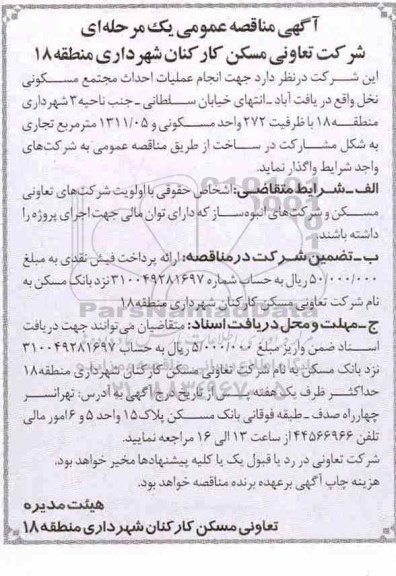 آگهی مناقصه عمومی یک مرحله‌ای
شرکت تعاونی مسکن کارکنان شهرداری منطقه ۱۸
این شرکت درنظر دارد جهت انجام عملیات احداث مجتمع مسکونی
نخل واقع در یافت آباد ـ انتهای خیابان سلطانی ـ جنب ناحیه ۳ شهرداری
منطقه ۱۸ با ظرفیت ۲۷۲ واحد مسکونی و ۱۳۱۱/۰۵ مترمربع تجاری
به شکل مشارکت در ساخت از طریق مناقصه عمومی به شرکت‌های
واجد شرایط واگذار نماید.
الف ـ شرایط متقاضی: اشخاص حقوقی با اولویت شرکت‌های تعاونی
مسکن و شرکت‌های انبوه‌ساز که دارای توان مالی جهت اجرای پروژه را
داشته باشند.
ب ـ تضمین شرکت در مناقصه: ارائه پرداخت فیش نقدی به مبلغ
۵۰/۰۰۰/۰۰۰ ریال به حساب شماره ۳۱۰۰۴۹۲۸۱۶۹۷ نزد بانک مسکن به
نام شرکت تعاونی مسکن کارکنان شهرداری منطقه ۱۸
ج ـ مهلت و محل دریافت اسناد: متقاضیان می‌توانند جهت دریافت
اسناد ضمن واریز مبلغ ۵/۰۰۰/۰۰۰ ریال به حساب ۳۱۰۰۴۹۲۸۱۶۹۷
نزد بانک مسکن به نام شرکت تعاونی مسکن کارکنان شهرداری منطقه ۱۸
حداکثر ظرف یک هفته پس از تاریخ درج آگهی به آدرس: تهرانسر
چهارراه صدف ـ طبقه فوقانی بانک مسکن پلاک ۱۵ واحد ۵ و ۶ امور مالی
تلفن ۴۴۵۶۶۹۶۶ از ساعت ۱۳ الی ۱۶ مراجعه نمایید.
شرکت تعاونی در رد یا قبول یک یا کلیه پیشنهادها مخیر خواهد بود.
هزینه چاپ آگهی برعهده برنده مناقصه خواهد بود.
هیئت مدیره
تعاونی مسکن کارکنان شهرداری منطقه ۱۸
ParsNamadData